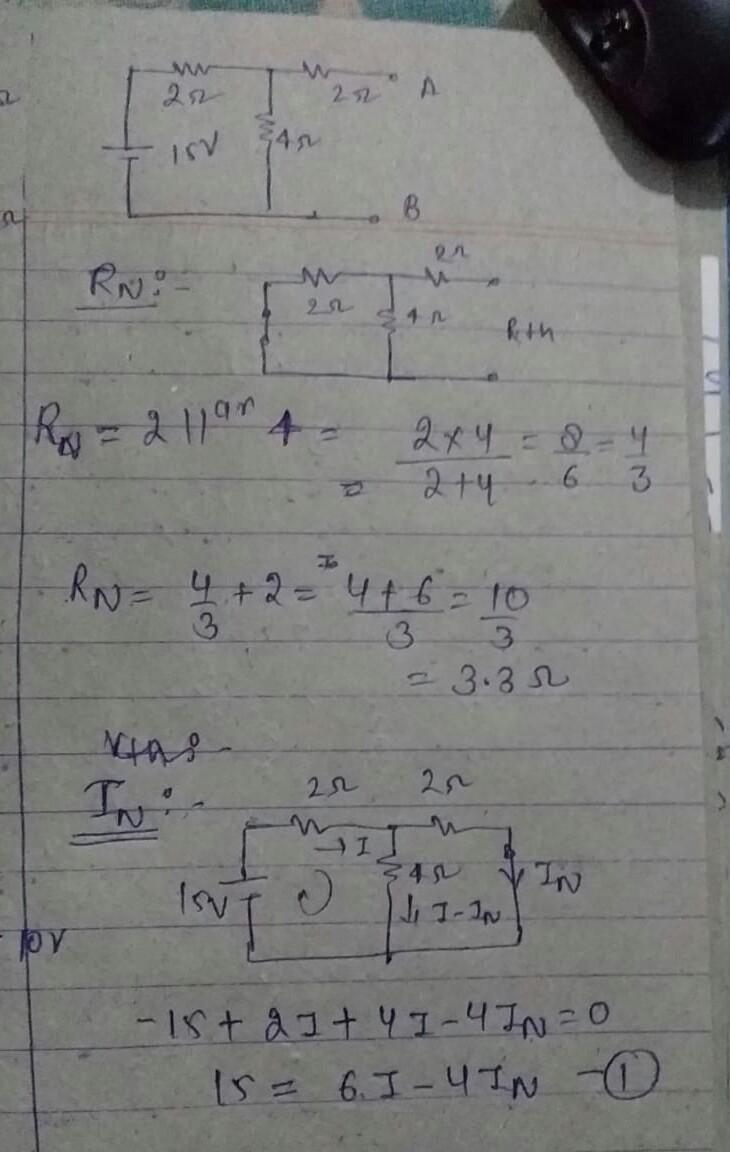 2Ω 2Ω A
15V 4Ω
B
RN:-
2Ω
2Ω 4Ω Rth
RN = 2 ||ar 4 = 2×4 = 8 = 4
= 2+4 6 3
RN = 4 + 2 = 4+6 = 10
3 3 3
= 3.3 Ω
IN:-
2Ω 2Ω
→I
15V 4Ω IN
↓ I-IN
10V
-15 + 2I + 4I - 4IN = 0
15 = 6I - 4IN -①